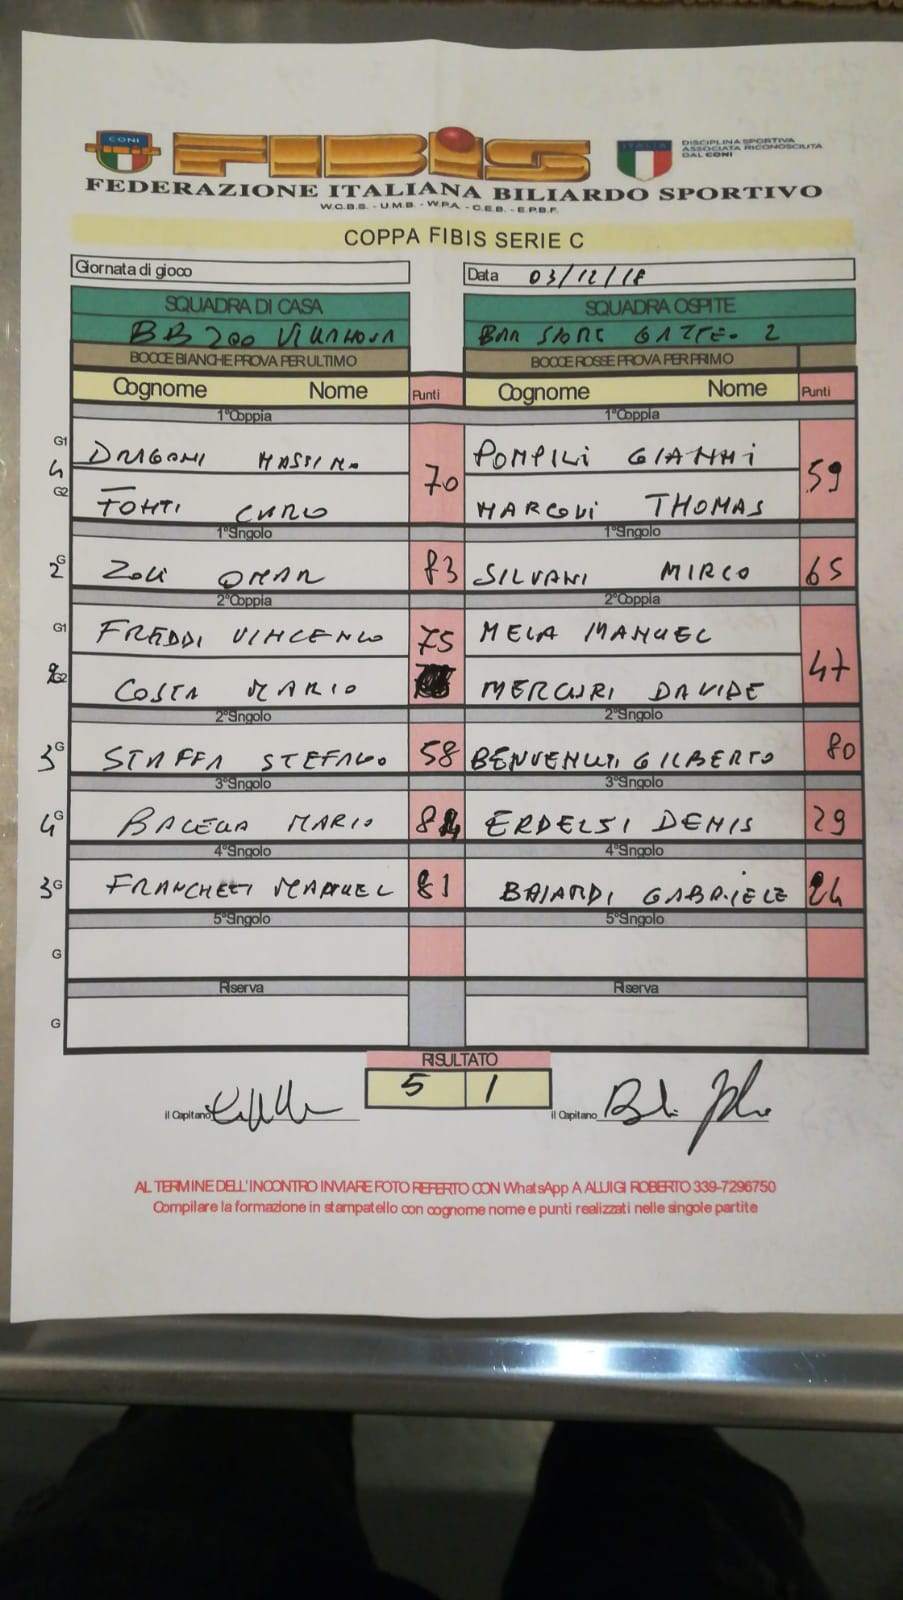 CONI
FIBIS
ITALIA
DISCIPLINA SPORTIVA
ASSOCIATA RICONOSCIUTA
DAL CONI
FEDERAZIONE ITALIANA BILIARDO SPORTIVO
W.C.B.S. - U.M.B. - W.P.A. - C.E.B. - E.P.B.F.
COPPA FIBIS SERIE C
Giornata di gioco Data 03/12/18
SQUADRA DI CASA SQUADRA OSPITE
BB 200 VILLANOVA BAR SPORT GATTEO 2
BOCCE BIANCHE PROVA PER ULTIMO BOCCE ROSSE PROVA PER PRIMO
Cognome Nome Punti Cognome Nome Punti
1°Coppia 1°Coppia
G1 DRAGONI MASSIMO POMPILI GIANNI
4 70 59
G2 FONTI CARLO MARCONI THOMAS
1°Singolo 1°Singolo
2 G ZOLI OMAR 83 SILVANI MIRCO 65
2°Coppia 2°Coppia
G1 FREDDI VINCENZO 75 MELA MANUEL 47
G2 COSTA MARIO MERCURI DAVIDE
2°Singolo 2°Singolo
3 G STAFFA STEFANO 58 BENVENUTI GILBERTO 80
3°Singolo 3°Singolo
4 G MARIO ERDELSI DENIS 29
4°Singolo 4°Singolo
3 G FRANCHETTI MANUEL 81 BAIARDI GABRIELE 24
5°Singolo 5°Singolo
G
Riserva Riserva
G
RISULTATO
5 1
il Capitano il Capitano
AL TERMINE DELL'INCONTRO INVIARE FOTO REFERTO CON WhatsApp A ALUIGI ROBERTO 339-7296750
Compilare la formazione in stampatello con cognome nome e punti realizzati nelle singole partite